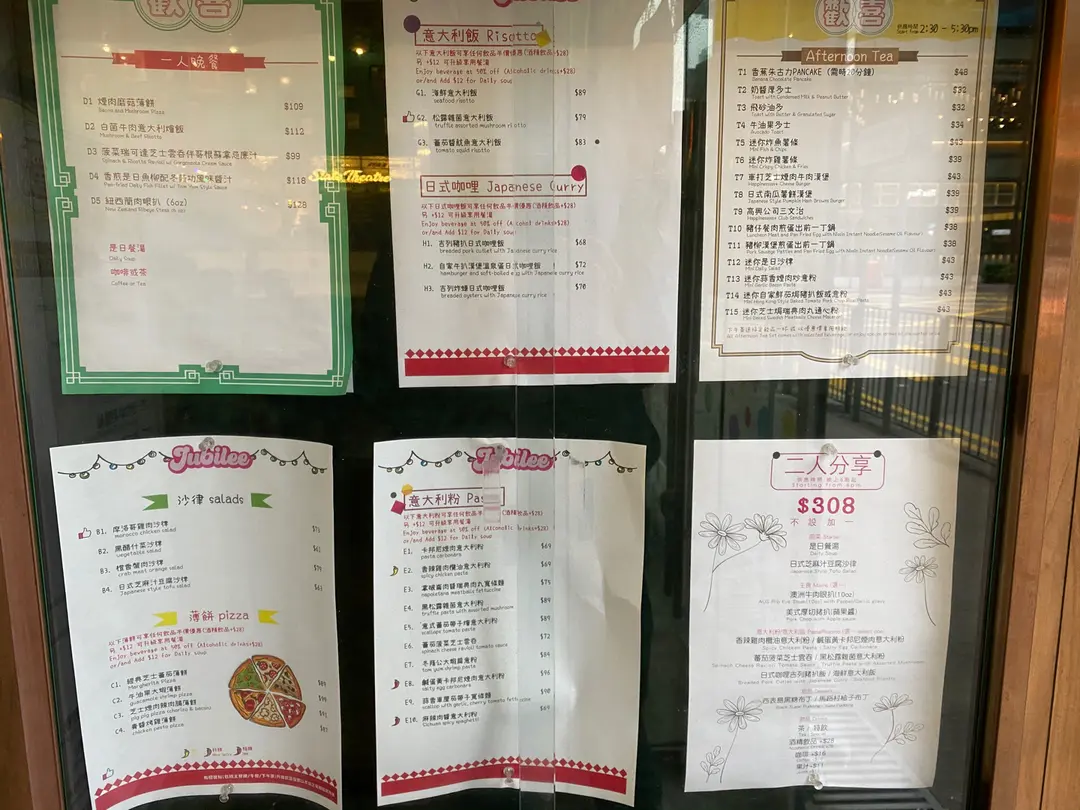 歡喜
一人晚餐
D1 煙肉蘑菇薄餅 $109
Bacon and Mushroom Pizza
D2 白菌牛肉意大利燴飯 $112
Mushroom & Beef Risotto
D3 菠菜瑞可達芝士雲吞伴哥根蘇拿忌廉汁 $99
Spinach & Ricotta Ravioli w/ Gorgonzola Cream Sauce
D4 香煎是日魚柳配冬蔭功風味醬汁 $118
Pan-fried Daily Fish Fillet w/ Tom Yum Style Sauce
D5 紐西蘭肉眼扒 (6oz) $128
New Zealand Ribeye Steak (6 oz)
是日餐湯
Daily Soup
咖啡或茶
Coffee or Tea
意大利飯 Risotto
以下意大利飯可享任何飲品半價優惠(酒精飲品+$28)
另 +$12 可升級享用餐湯
Enjoy beverage at 50% off (Alcoholic drinks+$28)
or/and Add $12 for Daily soup
G1. 海鮮意大利飯 $89
seafood risotto
G2. 松露雜菌意大利飯 $79
truffle assorted mushroom risotto
G3. 蕃茄醬魷魚意大利飯 $83
tomato squid risotto
日式咖哩 Japanese Curry
以下日式咖哩飯可享任何飲品半價優惠(酒精飲品+$28)
另 +$12 可升級享用餐湯
Enjoy beverage at 50% off (Alcohol drinks+$28)
or/and Add $12 for Daily soup
H1. 吉列豬扒日式咖哩飯 $68
breaded pork cutlet with Japanese curry rice
H2. 自家牛扒漢堡溫泉蛋日式咖哩飯 $72
hamburger and soft-boiled egg with Japanese curry rice
H3. 吉列炸蠔日式咖哩飯 $70
breaded oysters with Japanese curry rice
歡喜
供應時間 2:30 - 5:30pm
Afternoon Tea
T1 香蕉朱古力PANCAKE (需時20分鐘) $48
Banana Chocolate Pancake
T2 奶醬厚多士 $32
Toast with Condensed Milk & Peanut Butter
T3 飛砂油多 $32
Toast with Butter & Granulated Sugar
T4 牛油果多士 $34
Avocado Toast
T5 迷你炸魚薯條 $43
Mini Fish & Chips
T6 迷你炸雞薯條 $39
Mini Crispy Chicken & Fries
T7 車打芝士煙肉牛肉漢堡 $43
T8 日式南瓜薯餅漢堡 $39
Japanese Style Pumpkin Hash Browns Burger
T9 高興公司三文治 $39
T10 豬仔餐肉煎蛋出前一丁鍋 $38
T11 豬柳漢堡煎蛋出前一丁鍋 $38
T12 迷你是日沙律 $43
Mini Daily Salad
T13 迷你蒜香煙肉炒意粉 $43
Mini Garlic Bacon Pasta
T14 迷你自家鮮茄焗豬扒飯或意粉 $43
T15 迷你芝士焗瑞典肉丸通心粉 $43
Jubilee
沙律 salads
B1. 摩洛哥雞肉沙律
marocco chicken salad
B2. 黑醋什菜沙律
vegetable salad
B3. 橙香蟹肉沙律
crab meat orange salad
B4. 日式芝麻汁豆腐沙律
Japanese style tofu salad
薄餅 pizza
以下薄餅可享任何飲品半價優惠(酒精飲品+$28)
另 +$12 可升級享用餐湯
Enjoy beverage at 50% off (Alcoholic drinks+$28)
or/and Add $12 for Daily soup
C1. 經典芝士蕃茄薄餅
Margherita Pizza
C2. 牛油果大蝦薄餅
guacamole shrimp pizza
C3. 芝士煙肉辣肉腸薄餅
C4. 青醬烤雞薄餅
chicken pesto pizza
Jubilee
意大利粉 Pasta
以下意大利粉可享任何飲品半價優惠(酒精飲品+$28)
另 +$12 可升級享用餐湯
Enjoy beverage at 50% off (Alcoholic drinks+$28)
or/and Add $12 for Daily soup
E1. 卡邦尼煙肉意大利粉 $69
pasta carbonara
E2. 香辣雞肉欖油意大利粉 $69
spicy chicken pasta
E3. 拿破崙肉醬瑞典肉丸寬條麵 $79
napoletana meatballs fettuccine
E4. 黑松露雜菌意大利粉 $89
truffle pasta with assorted mushroom
E5. 意式蕃茄帶子燴意粉 $89
scallops tomato pasta
E6. 蕃茄菠菜芝士雲吞 $72
spinach cheese ravioli tomato sauce
E7. 冬蔭公大蝦扁意粉 $84
tom yum shrimp pasta
E8. 鹹蛋黃卡邦尼煙肉意大利粉 $96
salty egg carbonara
E9. 蒜香車厘茄帶子寬條麵 $90
scallop with garlic, cherry tomato fettuccine
E10. 麻辣肉醬意大利粉 $69
Sichuan spicy spaghetti
二人分享
Starting from 6pm
$308
不設加一
是日餐湯
Daily Soup
日式芝麻汁豆腐沙律
Japanese Style Tofu Salad
澳洲牛肉眼扒(10oz)
美式厚切豬扒(蘋果醬)
Pork Chop with Apple sauce
香辣雞肉欖油意大利粉 / 鹹蛋黃卡邦尼煙肉意大利粉
蕃茄菠菜芝士雲吞 / 黑松露雜菌意大利粉
日式咖哩吉列豬扒飯 / 海鮮意大利飯
茶 / 特飲
酒精飲品 +$28